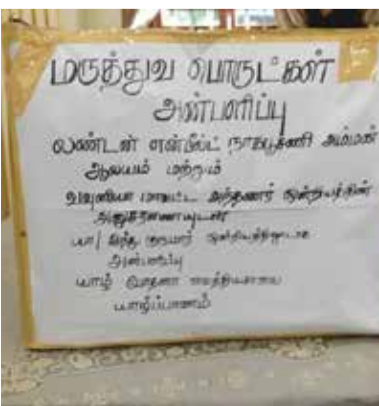 மருத்துவ பொருட்கள்
அன்பளிப்பு
லண்டன் என்பீல்ட் நாகபூசணி அம்மன்
ஆலயம் மற்றும்
வவுனியா மாவட்ட அந்தணர் ஒன்றியத்தின்
அனுசரணையுடன்
யா/ இந்து குருமார் ஒன்றியத்தினூடாக
அன்பளிப்பு
யாழ் போதனா வைத்தியசாலை
யாழ்ப்பாணம்